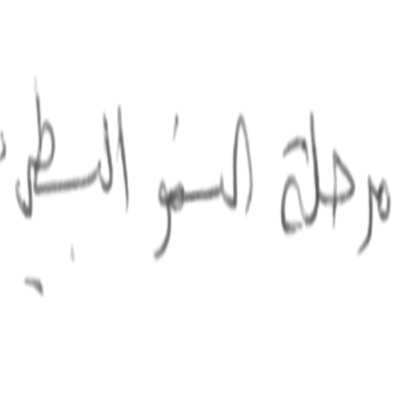 مرحلة النمو البطيء